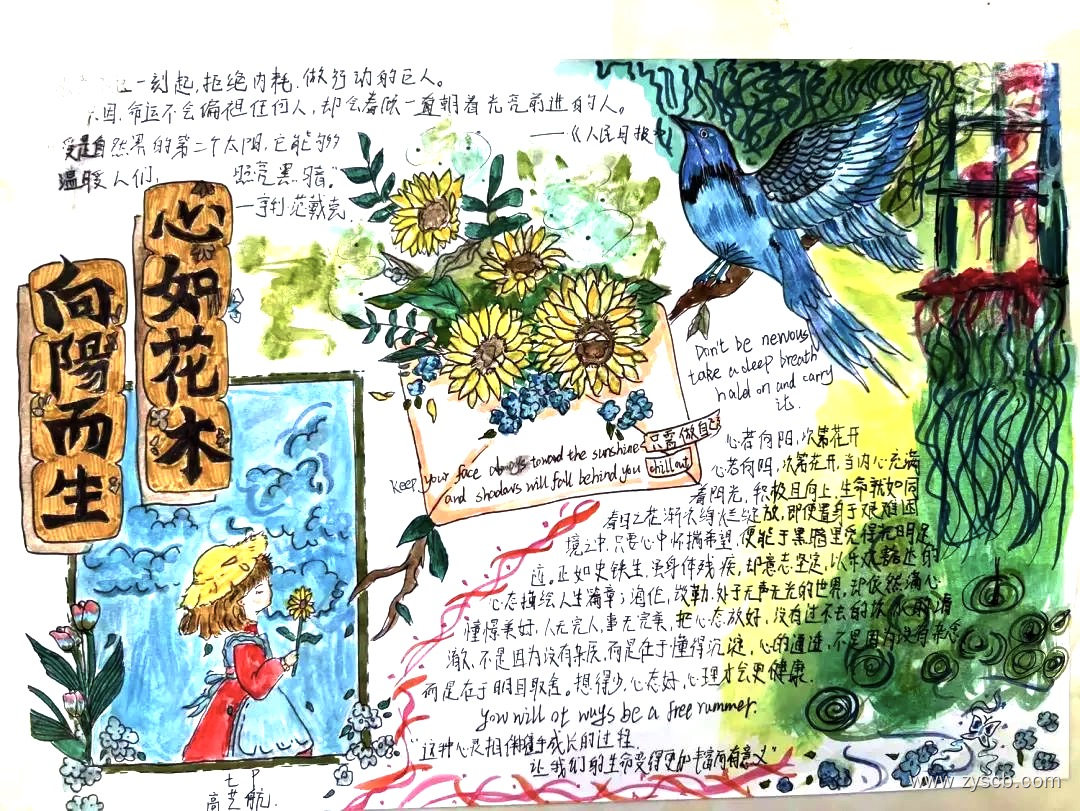 一刻起,拒绝内耗,做行动的巨人。
因,命运不会偏袒任何人,却会眷顾一直朝着光亮前进的人。
——《人民日报》
爱是自然界的第二个太阳,它能够
温暖人们, 照亮黑暗。"
—亨利 范戴克
心如花木
向陽而生
Don't be nervous
take a deep breath
hold on and carry
只需做自己
keep your face always toward the sunshine
and shadows will fall behind you
chill out
心若向阳,次第花开
心若向阳,次第花开,当内心充满
着阳光,积极且向上,生命就如同
春日之花渐次绚烂绽放,即使置身于艰难困
境之中,只要心中怀揣希望,便能于黑暗里觅得光明足
迹。正如史铁生,虽身体残疾,却意志坚定,以乐观豁达的
心态描绘人生篇章;海伦,凯勒,处于无声无光的世界,却依然满心
憧憬美好,人无完人,事无完美,把心态放好,没有过不去的坎,水的清
澈,不是因为没有杂质,而是在于懂得沉淀,心的通透,不是因为没有杂念
而是在于明目取舍。想得少,心态好,心理才会更健康.
you will be a free
"这种心灵相伴随于成长的过程,
让我们的生命变得更加丰富而有意义"
七
高艺航.
www.zyscb.com